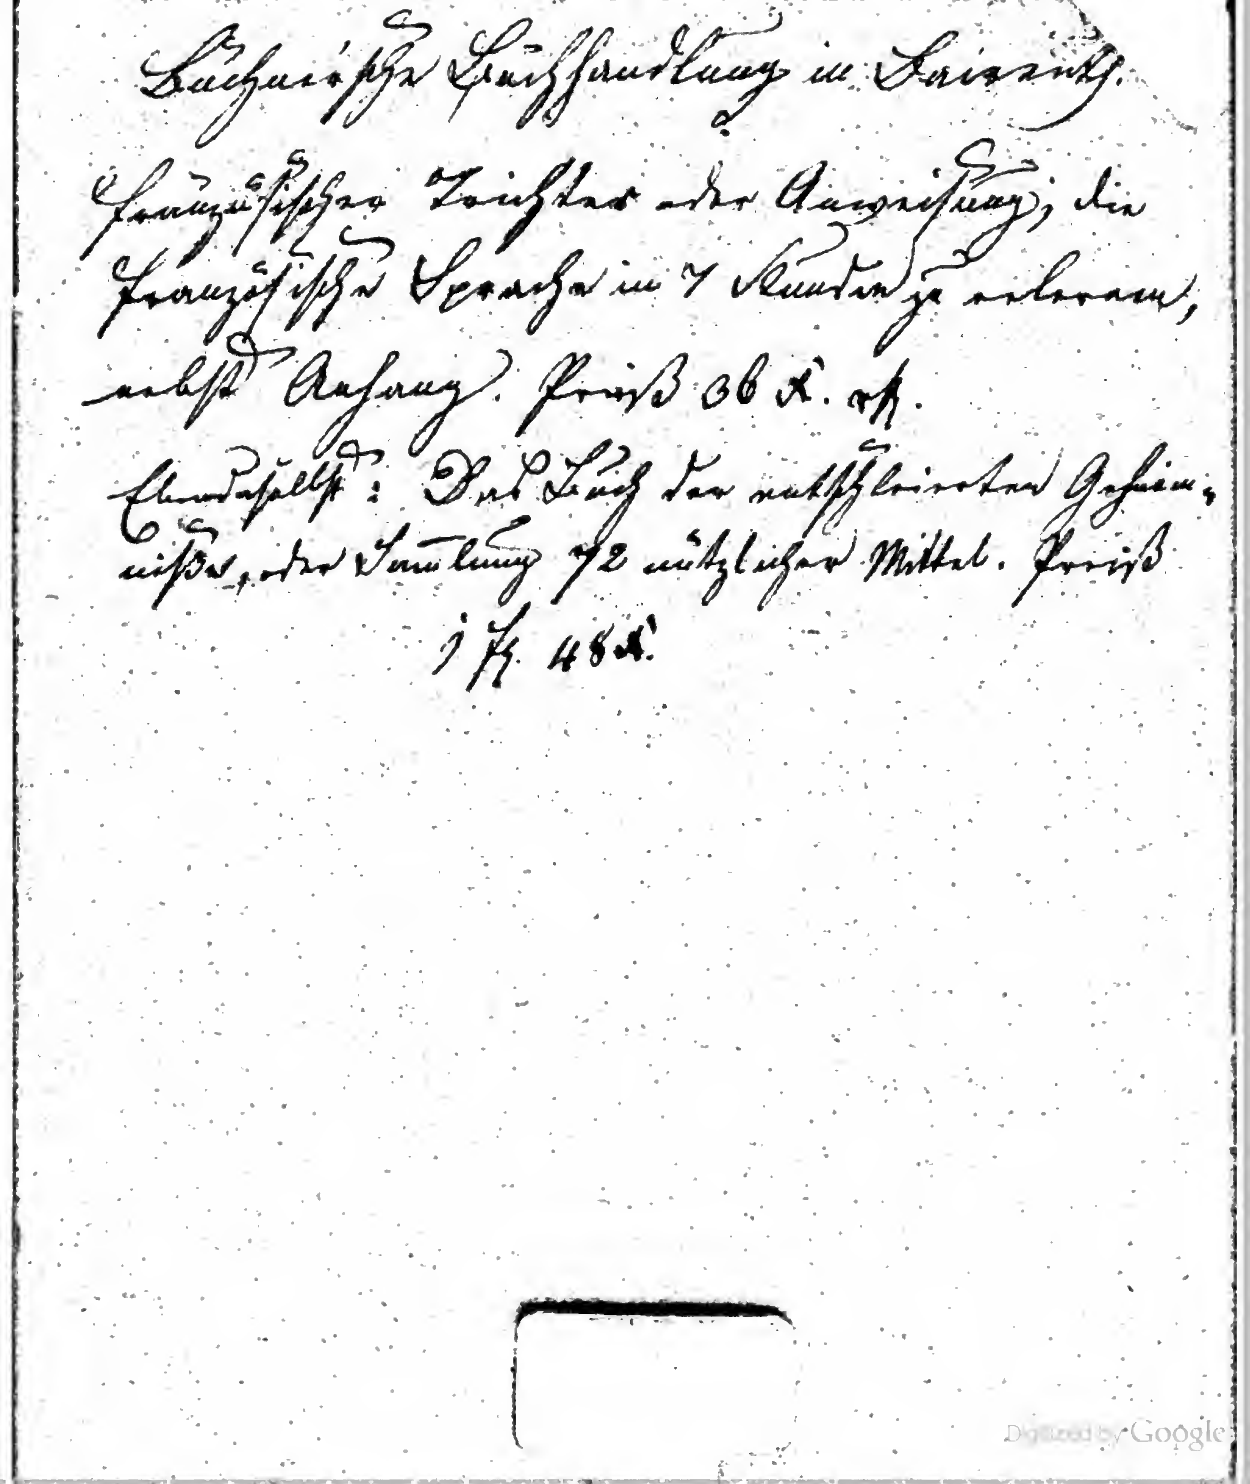 Buchner'sche Buchhandlung in Baireuth.
Französischer Trichter oder Anweisung, die
französische Sprache in 7 Stunden zu erlernen,
nebst Anhang. Preiß 36 X. rh.
Ebendaselbst: Das Buch der entschleierten Geheim-
niße, oder Sam̄lung 72 nützlicher Mittel. Preiß
1 fl. 48 X.
Digitized by Google